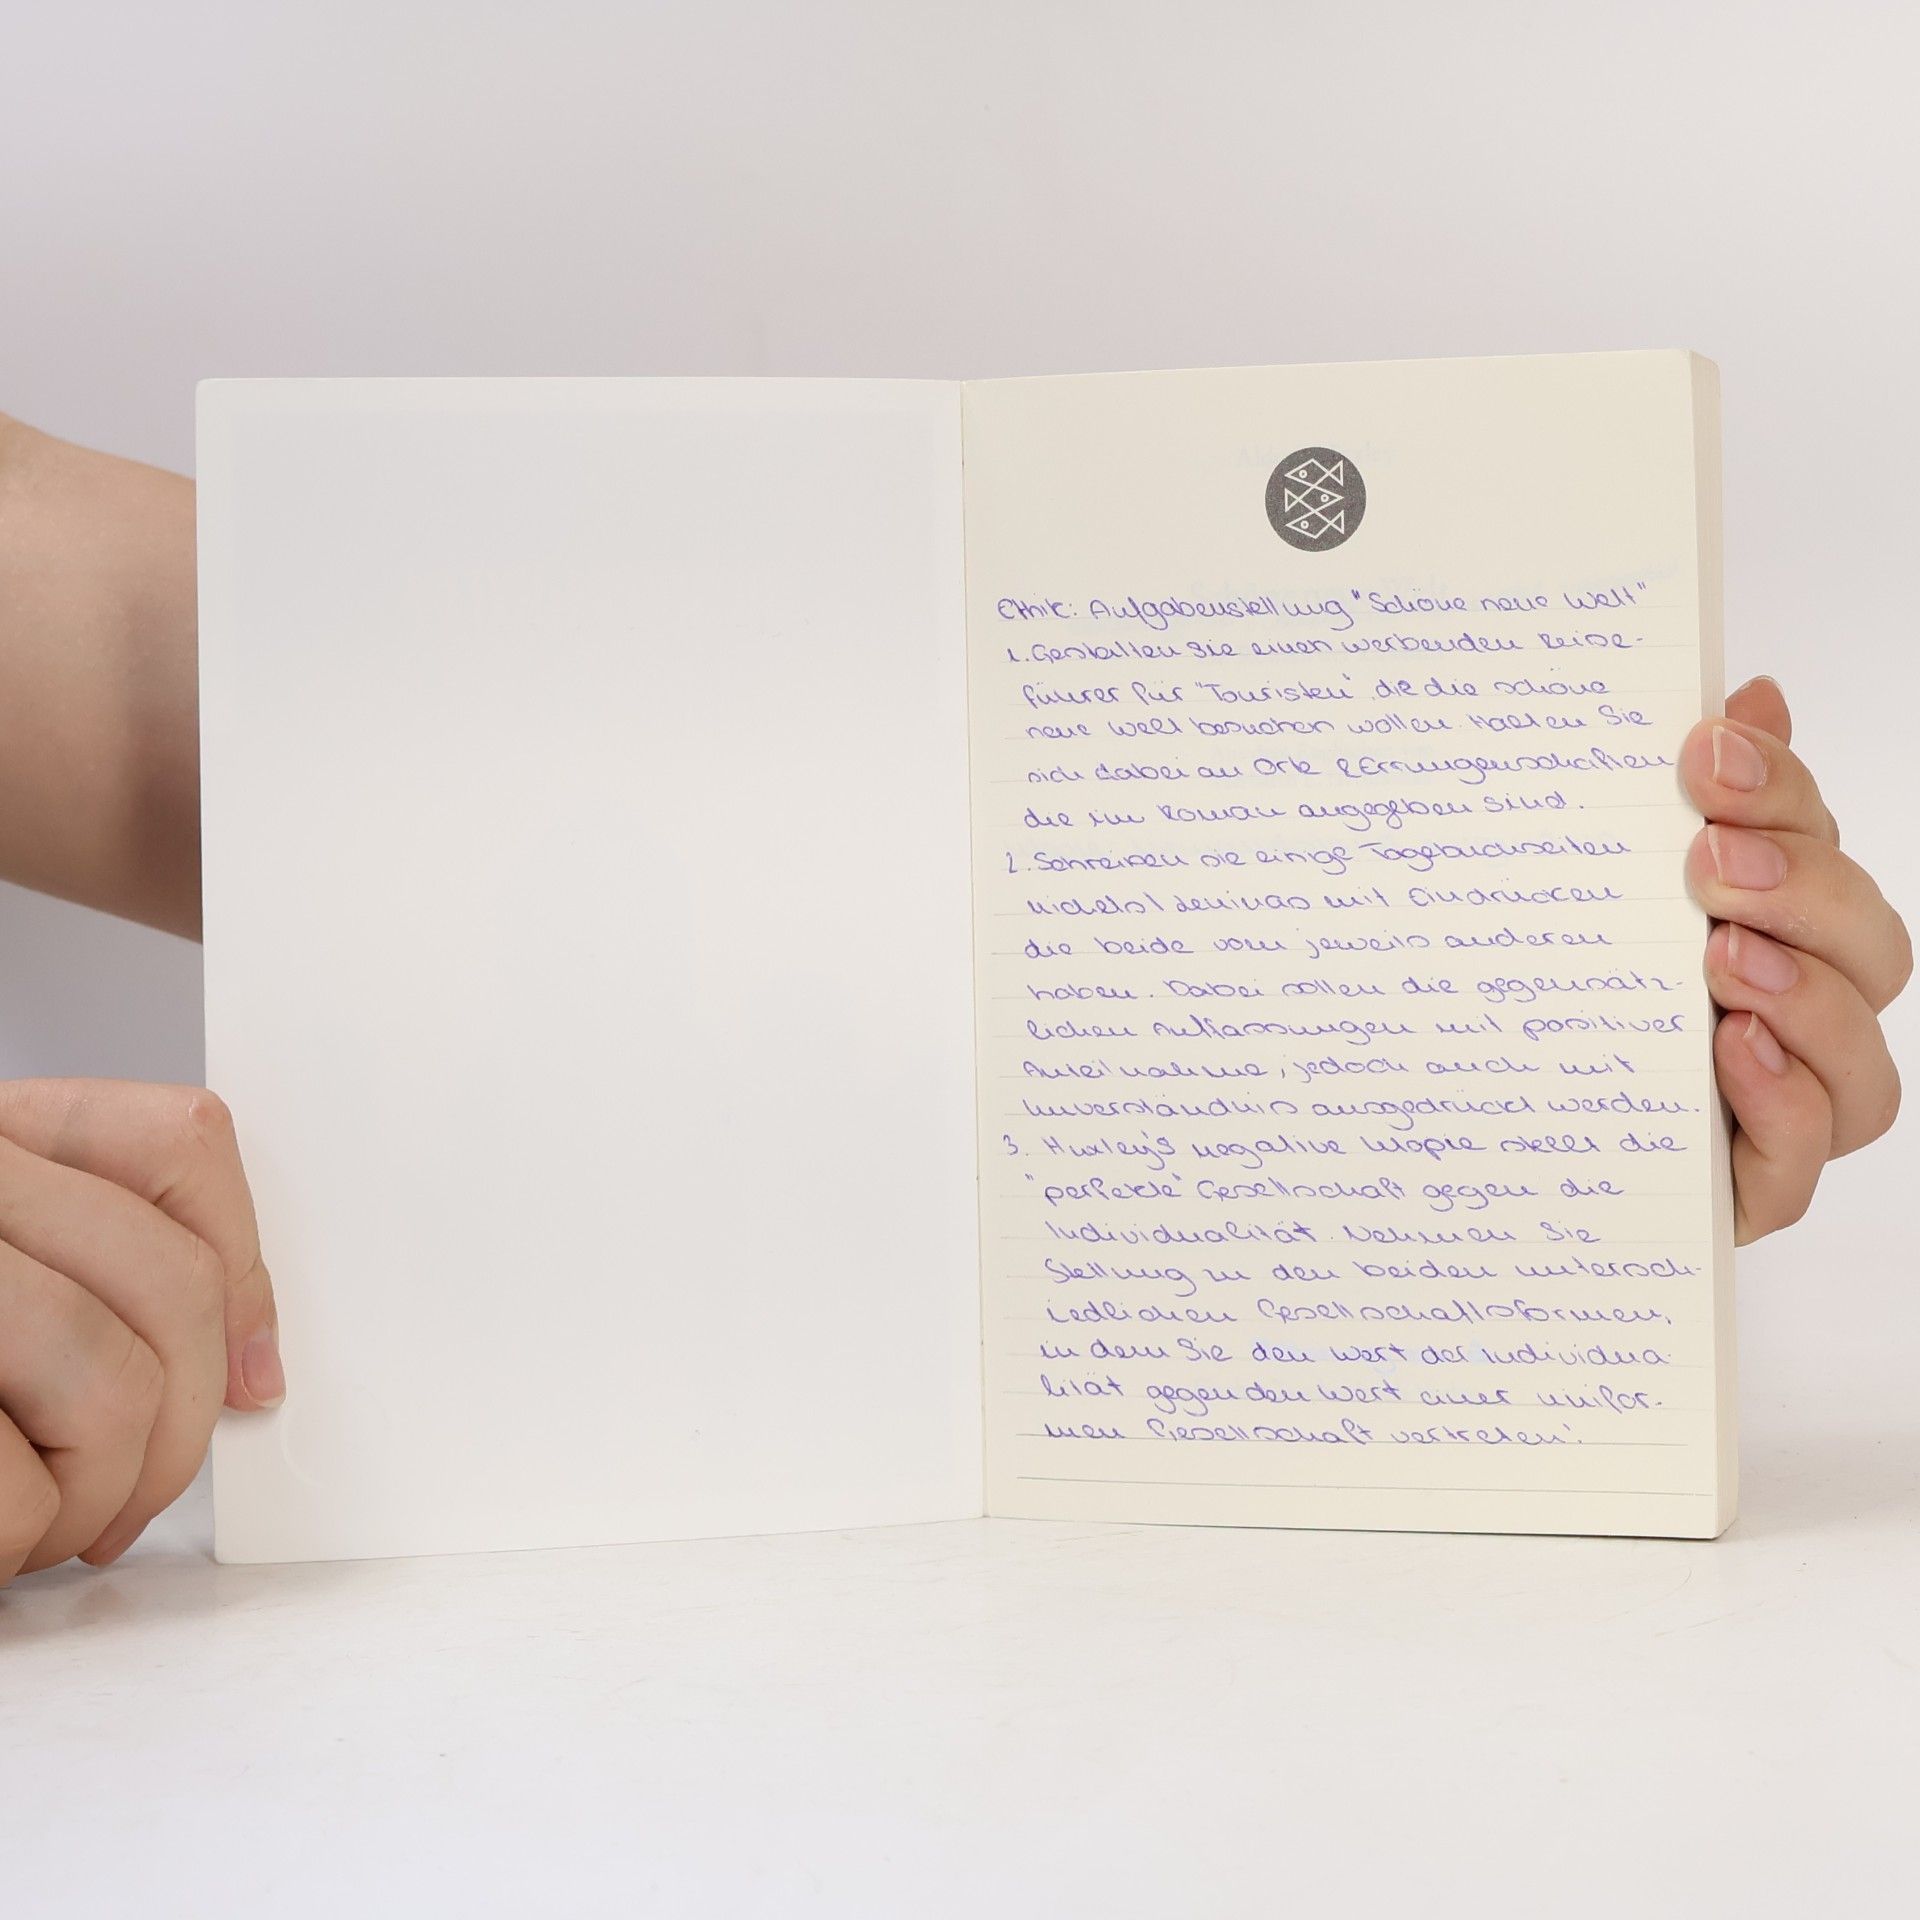 Ethik: Aufgabenstellung "Schöne neue Welt"
1. Gestalten Sie einen werbenden Reise-
führer für "Touristen", die die schöne
neue Welt besuchen wollen. Halten Sie
sich dabei an Orte & Errungenschaften
die im Roman angegeben sind.
2. Schreiben sie einige Tagebuchseiten
Michels/Leninas mit Eindrücken
die beide vom jeweils anderen
haben. Dabei sollen die gegensätz-
lichen Auffassungen mit positiver
Anteilnahme, jedoch auch mit
Unverständnis ausgedrückt werden.
3. Huxley's negative Utopie stellt die
"perfekte" Gesellschaft gegen die
Individualität. Nehmen Sie
Stellung zu den beiden untersch-
iedlichen Gesellschaftsformen,
in dem Sie den Wert der Individua-
lität gegen den Wert einer unifor-
men Gesellschaft vertreten!